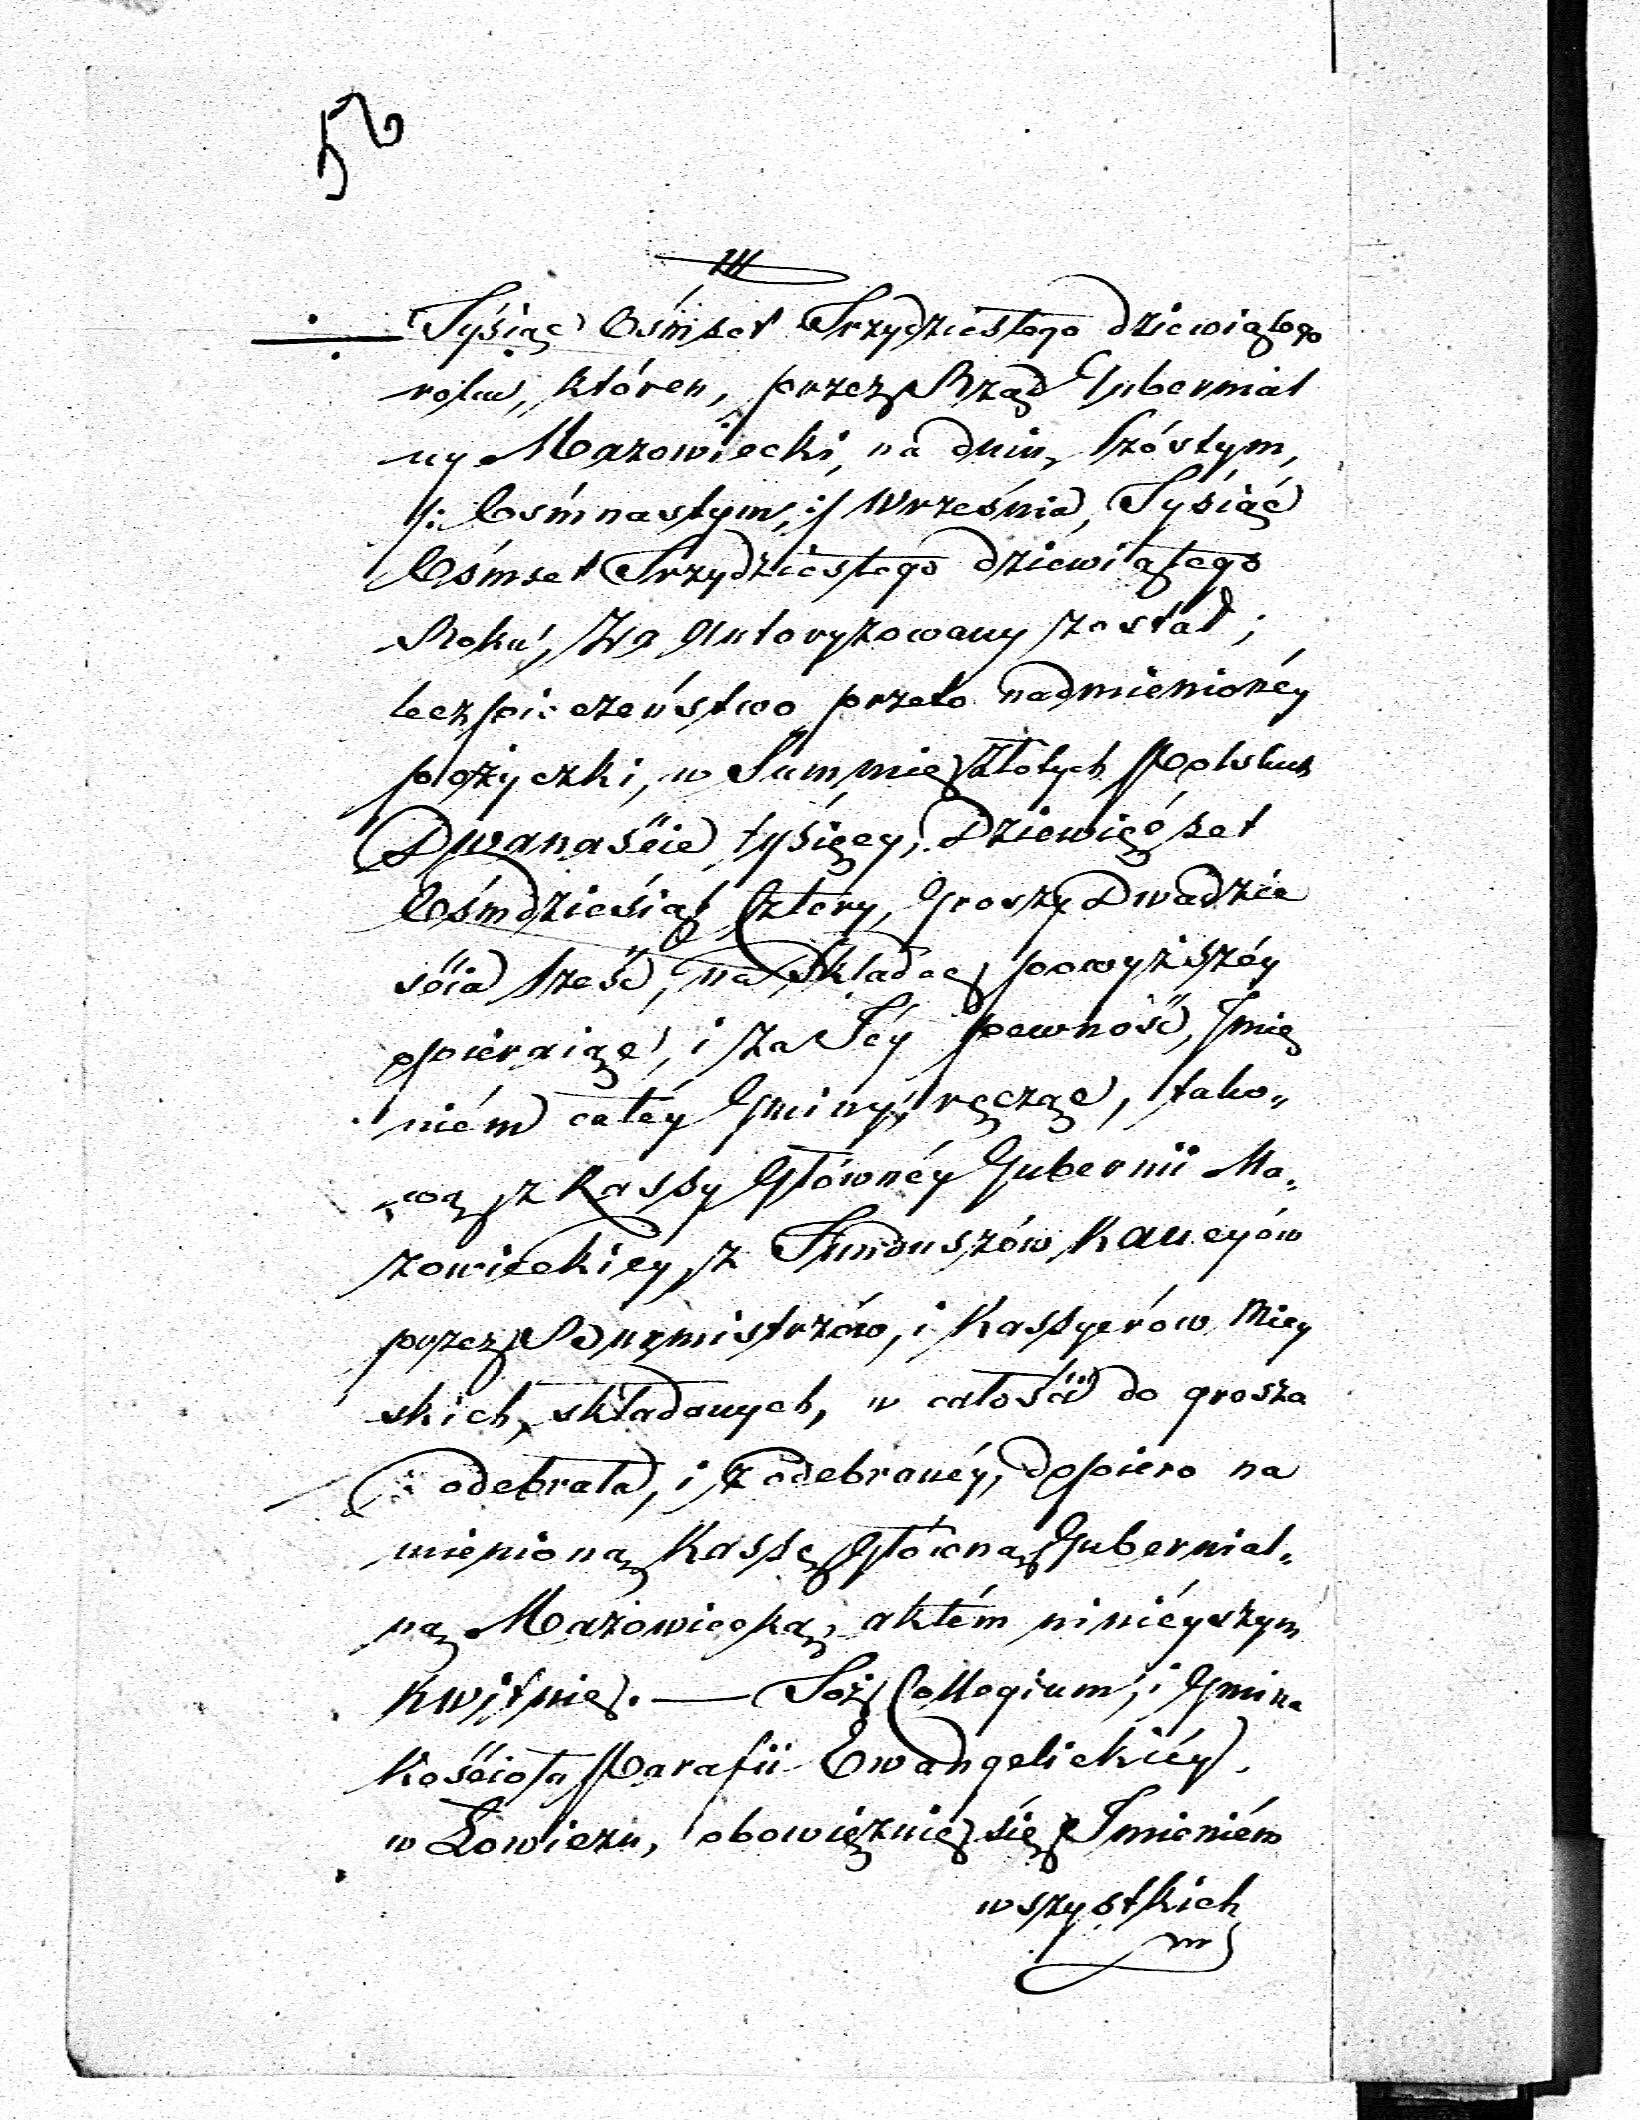 56
Tysiąc Ośmset Trzydziestego dziewiątego
roku, któren, przez Rząd Gubernial
ny Mazowiecki, na dniu, Szóstym,
/: Ośmnastym, :/ Września, Tysiąć
Ośmset Trzydziestego dziéwiątego
Roku, Za Autoryzowany został;
bezpieczeństwo przeto nadmienionéy
pożyczki, w Summie Złotych Polskich
Dwanaście tysięcy, Dziewięćset
Ośmdziesiąt Cztery, Groszy Dwadzie
ścia sześć, na Składce powyższéy
opieraiąc, i za Téy pewność, Jmie
niém całéy Gminy, ręcząc, tako„
„wą z Kassy Głównéy Gubernii Ma„
zowieckiey, z Funduszów Kaucyów
przez Burmistrzów, i Kassyerów Miey
skich, składanych, w całości do grosza
odebrała, i z odebranéy, dopiero na
mienioną Kassę Główną Gubernial„
ną Mazowiecką, aktém niniéyszym
Kwituie. — Toż Collegium, i Gmina
Kościoła Parafii Ewangelickiéy,
w Łowiczu, obowięzuie się Jmieniém
wszystkich